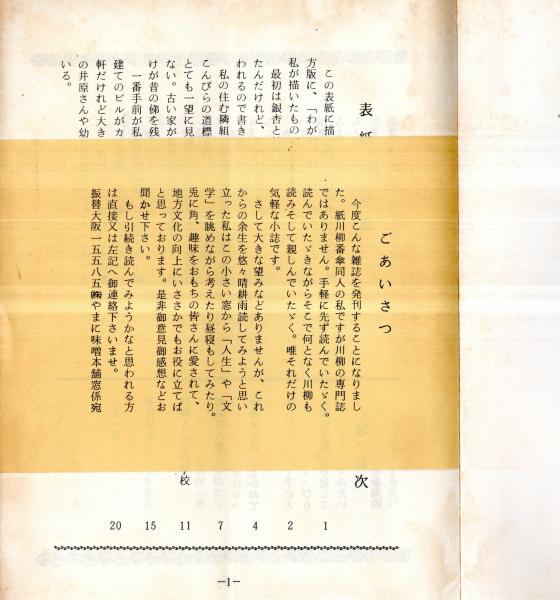 表紙
この表紙に描
方版に、「わが
私が描いたもの
最初は銀杏と
たんだけれど、
われるので書き
私の住む隣組
こんぴらの道標
とても一望に見
ない。古い家が
けが昔の俤を残
一番手前が私
建てのビルがカ
軒だけれど大き
の井原さんや幼
いる。
ごあいさつ
今度こんな雑誌を発刊することになりまし
た。紙川柳番傘同人の私ですが川柳の専門誌
ではありません。手軽に先ず読んでいたゞく。
読んでいたゞきながらそこで何となく川柳も
読みそして親しんでいたゞく。唯それだけの
気軽な小誌です。
さして大きな望みなどありませんが、これ
からの余生を悠々晴耕雨読してみようと思い
立った私はこの小さい窓から「人生」や「文
学」を眺めながら考えたり昼寝もしてみたり。
兎に角、趣味をおもちの皆さんに愛されて、
地方文化の向上にいささかでもお役に立てば
と思っております。是非御意見御感想などお
聞かせ下さい。
もし引続き読んでみようかなと思われる方
は直接又は左記へ御連絡下さいませ。
振替大阪一五五八五㈱やまに味噌本舗窓係宛
次
校
1
2
4
7
11
15
20
—1—